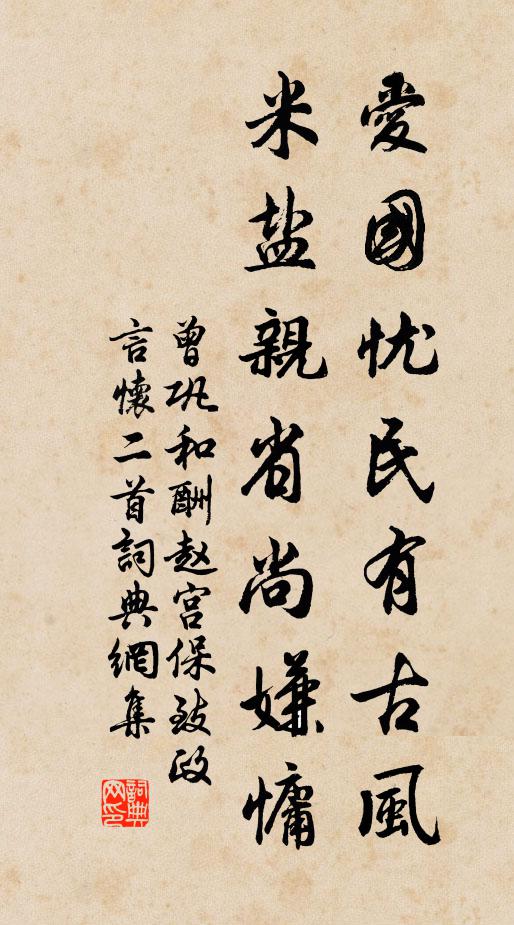 愛國忧民有古風
米盐親省尚嫌慵
曾巩和酬赵宫保致政
言懷二首詞典網集
詞典网印